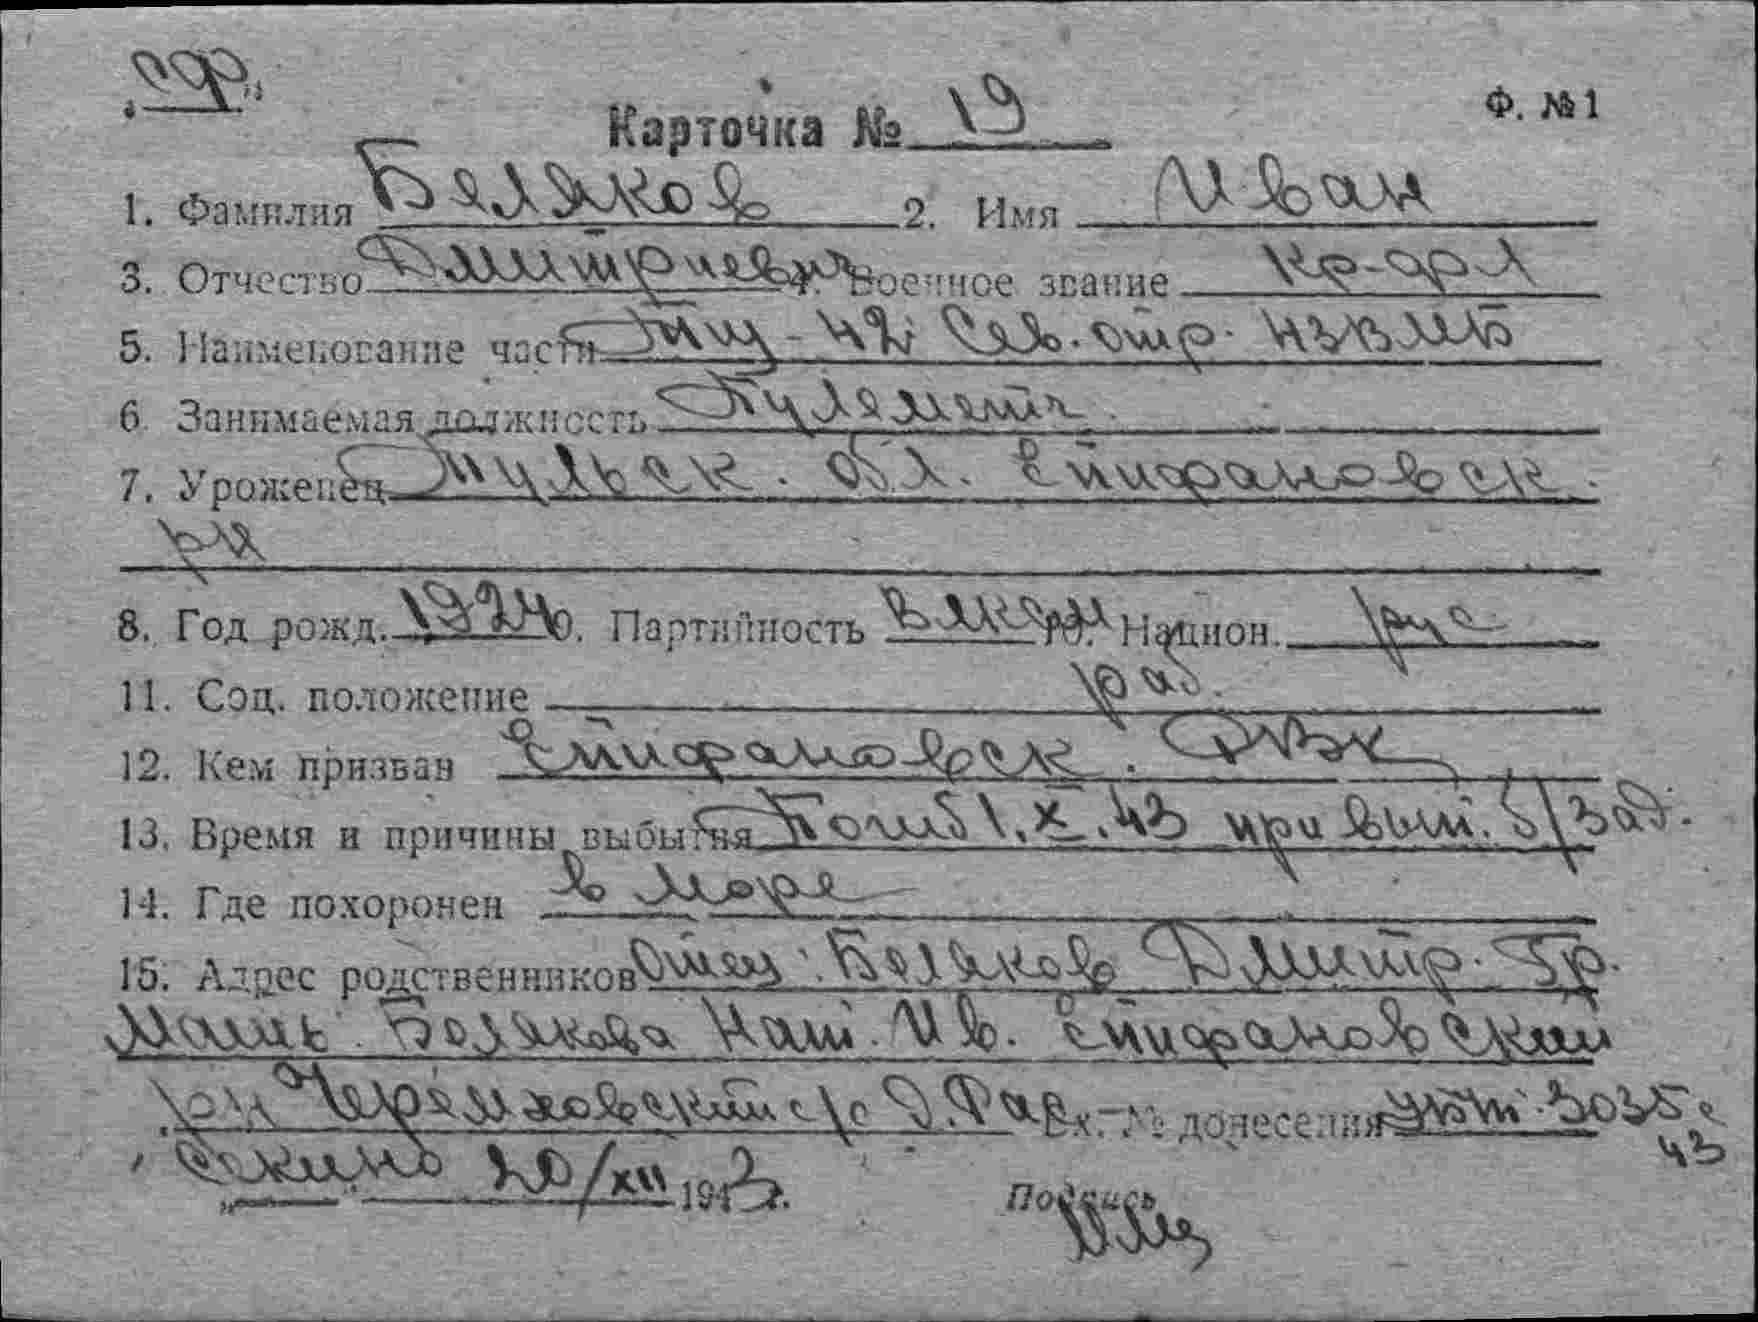 „сф“
Карточка № 19 Ф. №1
1. Фамилия Беляков 2. Имя Иван
3. Отчество Дмитриевич 4. Военное звание кр-фл
5. Наименование части ТЩ-42 Сев. отр. ИЗВМБ
6. Занимаемая должность Пулеметч.
7. Уроженец Тульск. обл. Епифановск.
рн
8. Год рожд. 1924 9. Партийность ВЛКСМ 10. Национ. рус
11. Соц. положение раб.
12. Кем призван Епифановск. РВК
13. Время и причины выбытия Погиб 1.X.43 при вып. б/зад.
14. Где похоронен в море
15. Адрес родственников Отец: Беляков Дмитр. Гр.
Мать: Белякова Нат. Ив. Епифановский
рн Черемховский с/с д. Вх. № донесения 3035с
43
20/XII 1943г.
Подпись